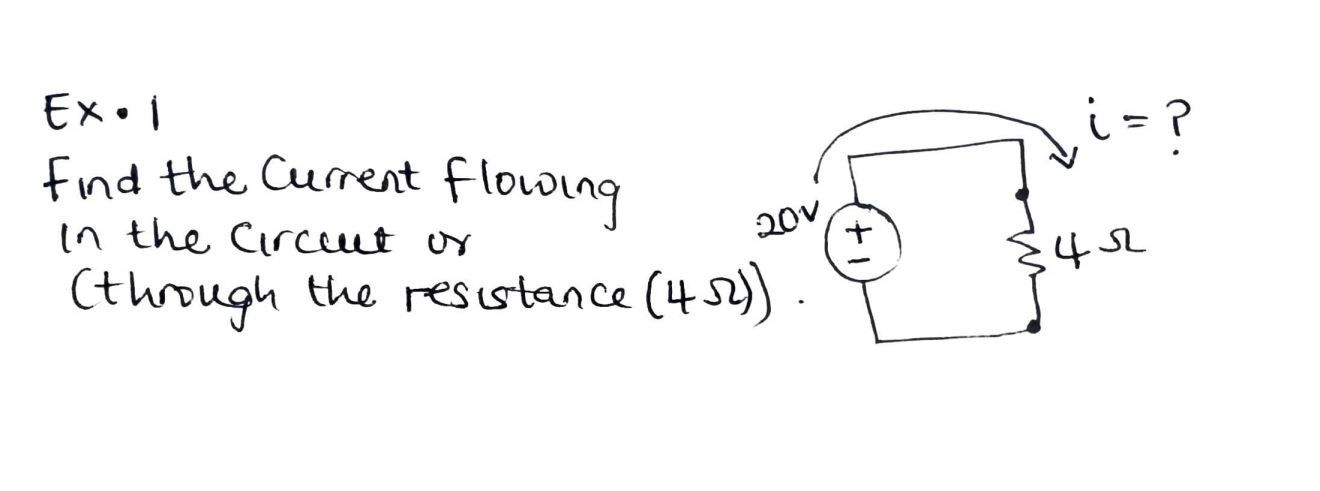 Ex. 1
Find the Current flowing
in the Circuit or
(through the resistance (4Ω)).
i = ?
20V
+
−
4Ω